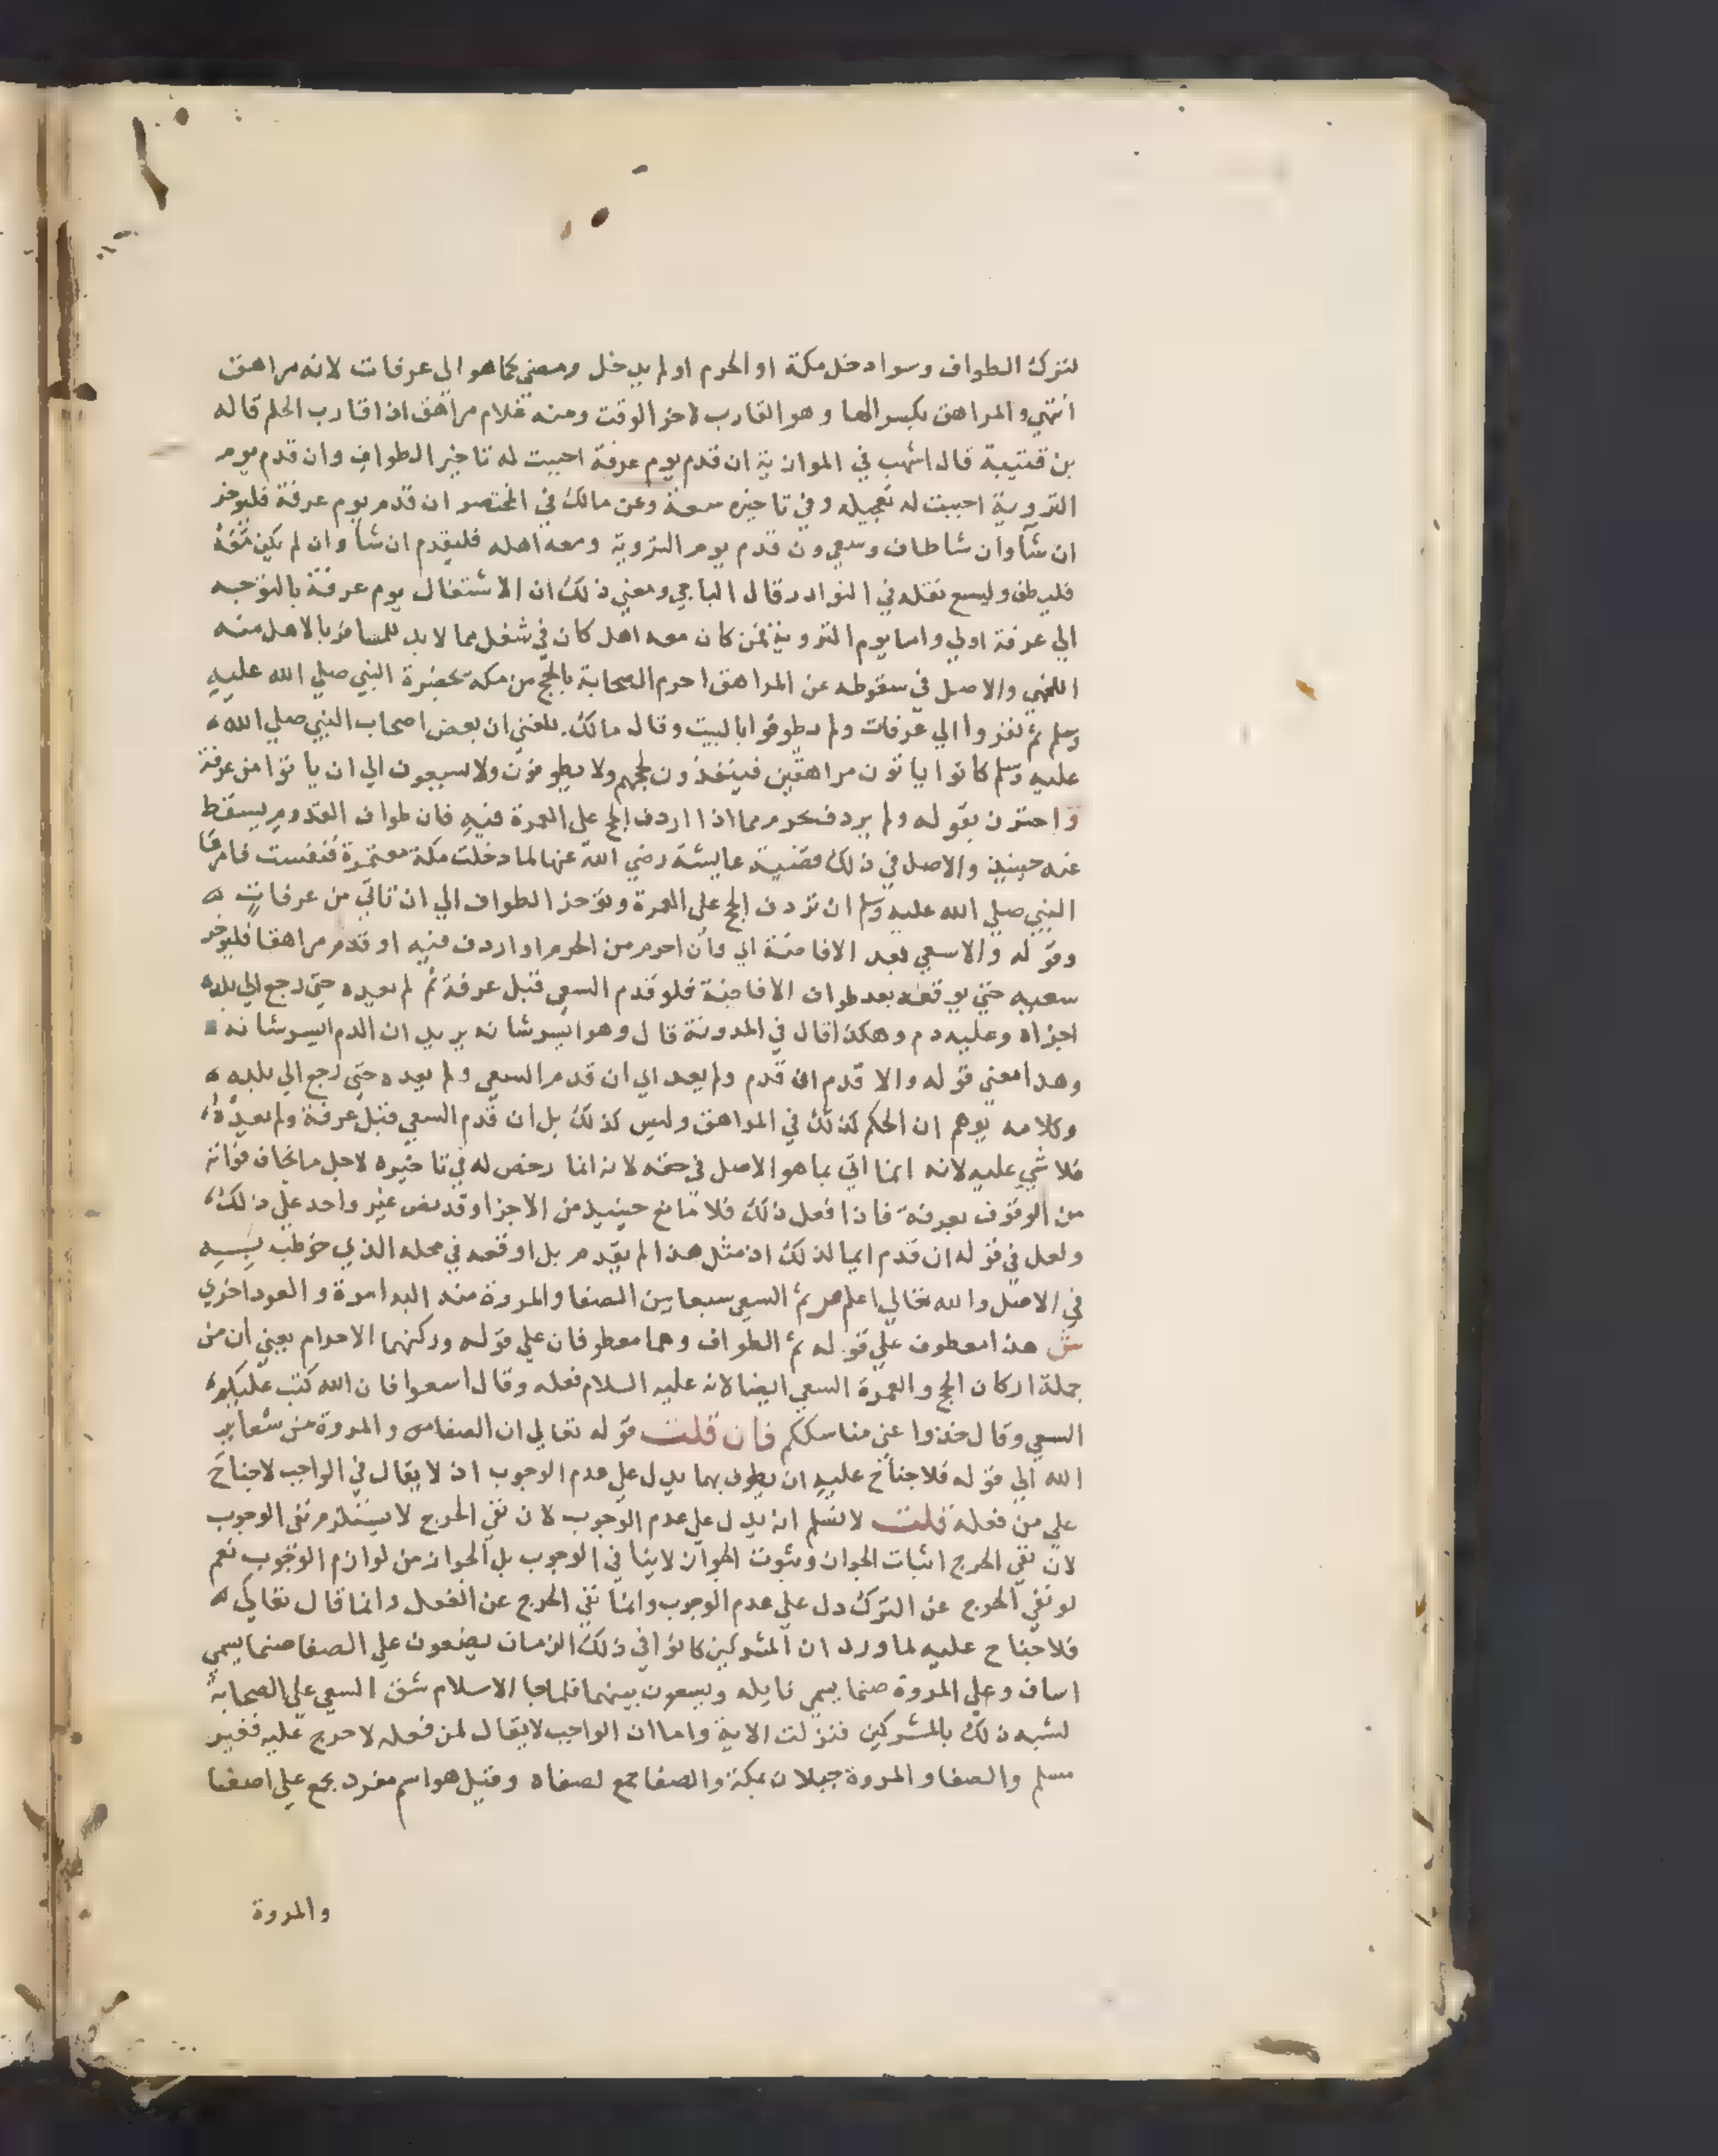 لترك الطواف وسوا دخل مكة او الحرم او لم يدخل ومضي كما هو الي عرفات لانه مراهق
انتهي والمراهق بكسر الها وهو القارب لاخر الوقت ومنه غلام مراهق اذا قارب الحلم قاله
بن قتيبة قال اشهب في الموازية ان قدم يوم عرفة احببت له تاخير الطواف وان قدم يوم
التروية احببت له تعجيله وفي تاخيره سعة وعن مالك في المختصر ان قدم يوم عرفة فليوخر
ان شا وان شا طاف وسعي وان قدم يوم التروية ومعه اهله فليقدم ان شا وان لم يكن معه
فليطف وليسع نقله في النوادر قال الباجي ومعني ذلك ان الاشتغال يوم عرفة بالتوجه
الي عرفة اولي واما يوم التروية فمن كان معه اهل كان في شغل مما لا بد للمسافر بالاهل منه
اللخمي والاصل في سقوطه عن المراهق احرم الصحابة بالحج من مكة بحضرة النبي صلي الله عليه
وسلم ثم نفروا الي عرفات ولم يطوفوا بالبيت وقال مالك بلغني ان بعض اصحاب النبي صلي الله
عليه وسلم كانوا ياتون مراهقين فينفذون لحجهم ولا يطوفون ولا يسعون الي ان ياتوا من عرفة
واحترز بقوله ولم يردف بحرم مما اذا اردف الحج علي العمرة فيه فان طواف القدوم يسقط
عنه حينيذ والاصل في ذلك قضية عايشة رضي الله عنها لما دخلت مكة معتمرة فنفست فامرها
النبي صلي الله عليه وسلم ان تردف الحج علي العمرة وتوخر الطواف الي ان تاتي من عرفات
وقوله والا سعي بعد الافاضة اي وان احرم من الحرم او اردف فيه او قدم مراهقا فليوخر
سعيه حتي يوقعه بعد طواف الافاضة فلو قدم السعي قبل عرفة ثم لم يعيده حتي رجع الي بلده
اجزاه وعليه دم وهكذا قال في المدونة قال وهو ايسر شانه يريد ان الدم ايسر شانه
وهذا معني قوله والا قدم ان قدم ولم يعد اي ان قدم السعي ولم يعده حتي رجع الي بلده
وكلامه يوهم ان الحكم كذلك في المراهق وليس كذلك بل ان قدم السعي قبل عرفة ولم يعده
فلا شي عليه لانه انما اتي بما هو الاصل في حقه لانه انما رخص له في تاخيره لاجل ما يخاف فواته
من الوقوف بعرفة فاذا فعل ذلك فلا مانع حينيذ من الاجزا وقد نص غير واحد علي ذلك
ولعل في قوله ان قدم ايما لذلك اذ مثل هذا لم يقدم بل اوقعه في محله الذي خوطب به
في الاصل والله تعالي اعلم ص ثم السعي سبعا بين الصفا والمروة منه البدا مرة والعود اخري
ش هذا معطوف علي قوله ثم الطواف وهما معطوفان علي قوله وركنهما الاحرام يعني ان من
جملة اركان الحج والعمرة السعي ايضا لانه عليه السلام فعله وقال اسعوا فان الله كتب عليكم
السعي وقال خذوا عني مناسككم فان قلت قوله تعالي ان الصفا والمروة من شعاير
الله الي قوله فلا جناح عليه ان يطوف بهما يدل علي عدم الوجوب اذ لا يقال في الواجب لا جناح
علي من فعله قلت لا نسلم انه يدل علي عدم الوجوب لان نفي الحرج لا يستلزم نفي الوجوب
لان نفي الحرج اثبات الجواز وثبوت الجواز لا ينافي الوجوب بل الجواز من لوازم الوجوب نعم
لو نفي الحرج عن الترك دل علي عدم الوجوب وانما نفي الحرج عن الفعل وانما قال تعالي
فلا جناح عليه لما ورد ان المشركين كانوا في ذلك الزمان يضعون علي الصفا صنما يسمي
اساف وعلي المروة صنما يسمي نايله ويسعون بينهما فلما جا الاسلام شق السعي علي الصحابة
لشبه ذلك بالمشركين فنزلت الاية واما ان الواجب لا يقال لمن فعله لا حرج عليه فغير
مسلم والصفا والمروة جبلان بمكة والصفا جمع لصفاه وقيل هو اسم مفرد يجمع علي اصفا
والمروة